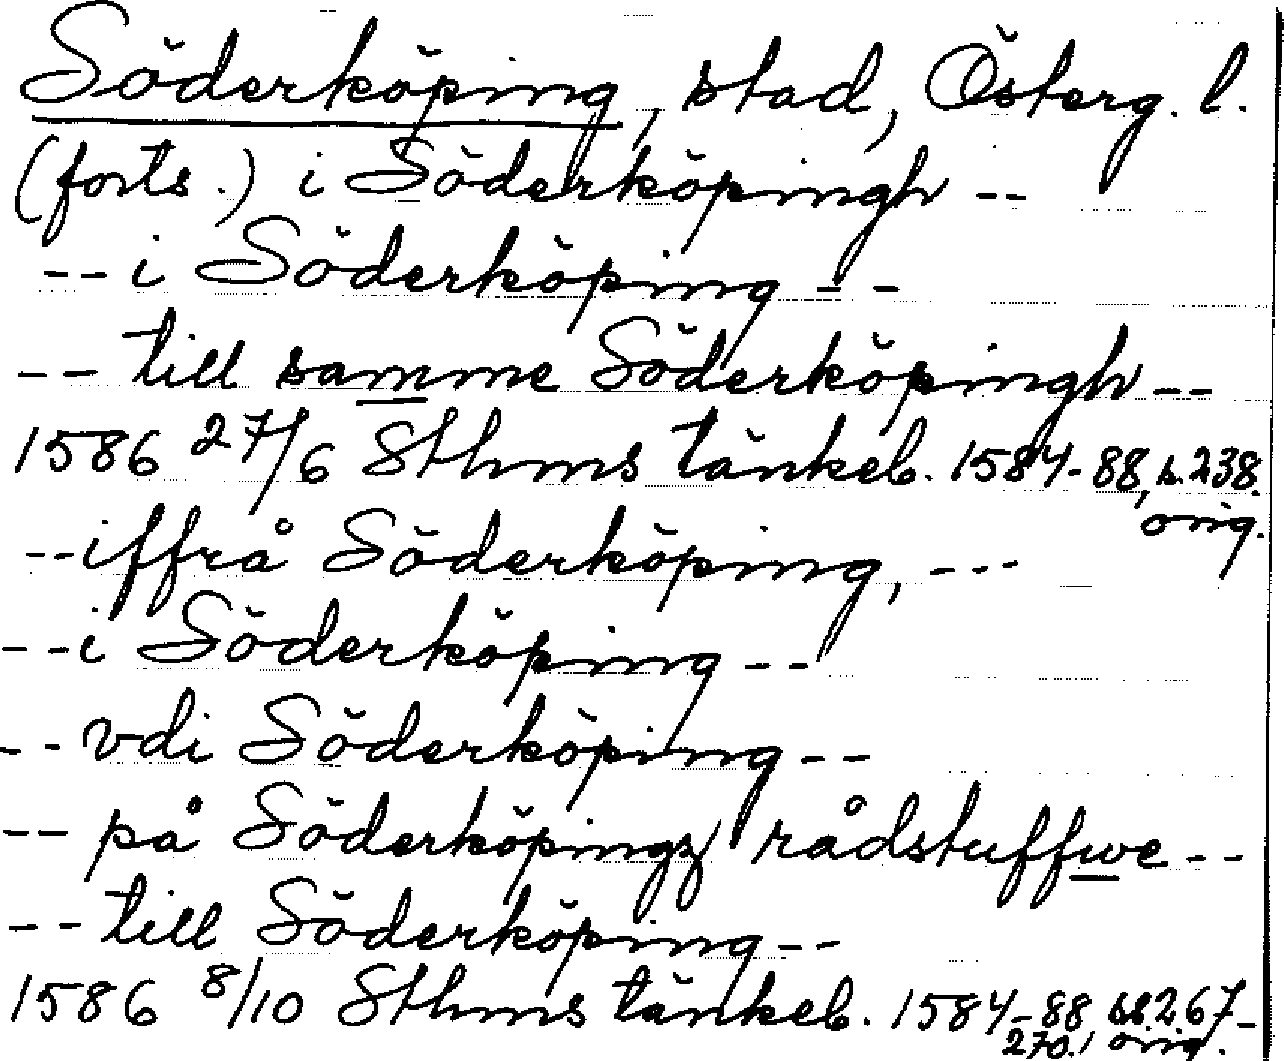 Söderköping, stad, Österg. l.
(forts.) i Söderköpingh --
-- i Söderköping --
-- till samme Söderköpingh --
1586 27/6 Sthms tänkeb. 1584-88, s. 238.
orig.
-- iffrå Söderköping, ---
-- i Söderköping --
-- vdi Söderköping --
-- på Söderköpingz rådstuffwe --
-- till Söderköping --
1586 8/10 Sthms tänkeb. 1584-88 ss 267-
270, orig.